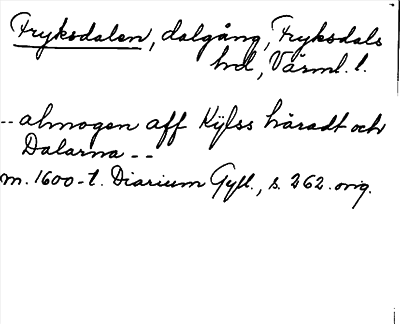 Fryksdalen, dalgång, Fryksdals
hd, Värml. l.
-- almogen aff Kÿlss häradt och
Dalarna --
m. 1600-t. Diarium Gyll., s. 262. orig.